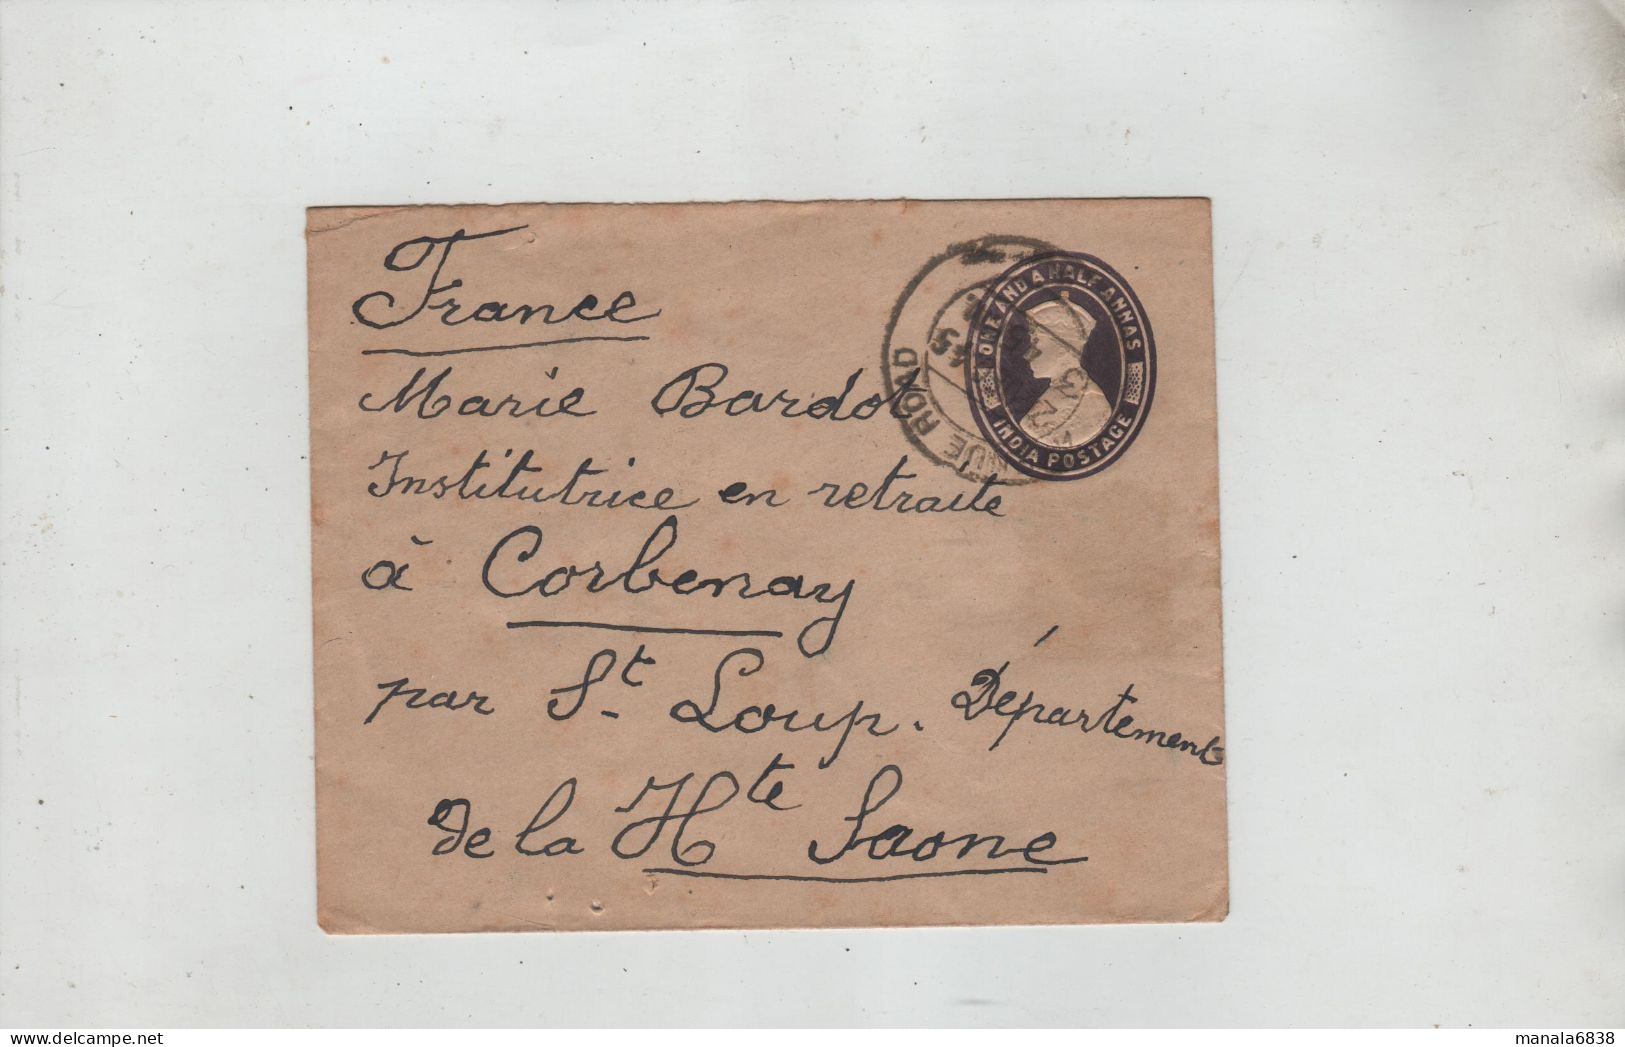 France
ONE AND A HALF ANNAS
INDIA POSTAGE
ROAD
45
Marie Bardot
Institutrice en retraite
à Corbenay
par St. Loup. Département
de la Hte Saone
manala6838